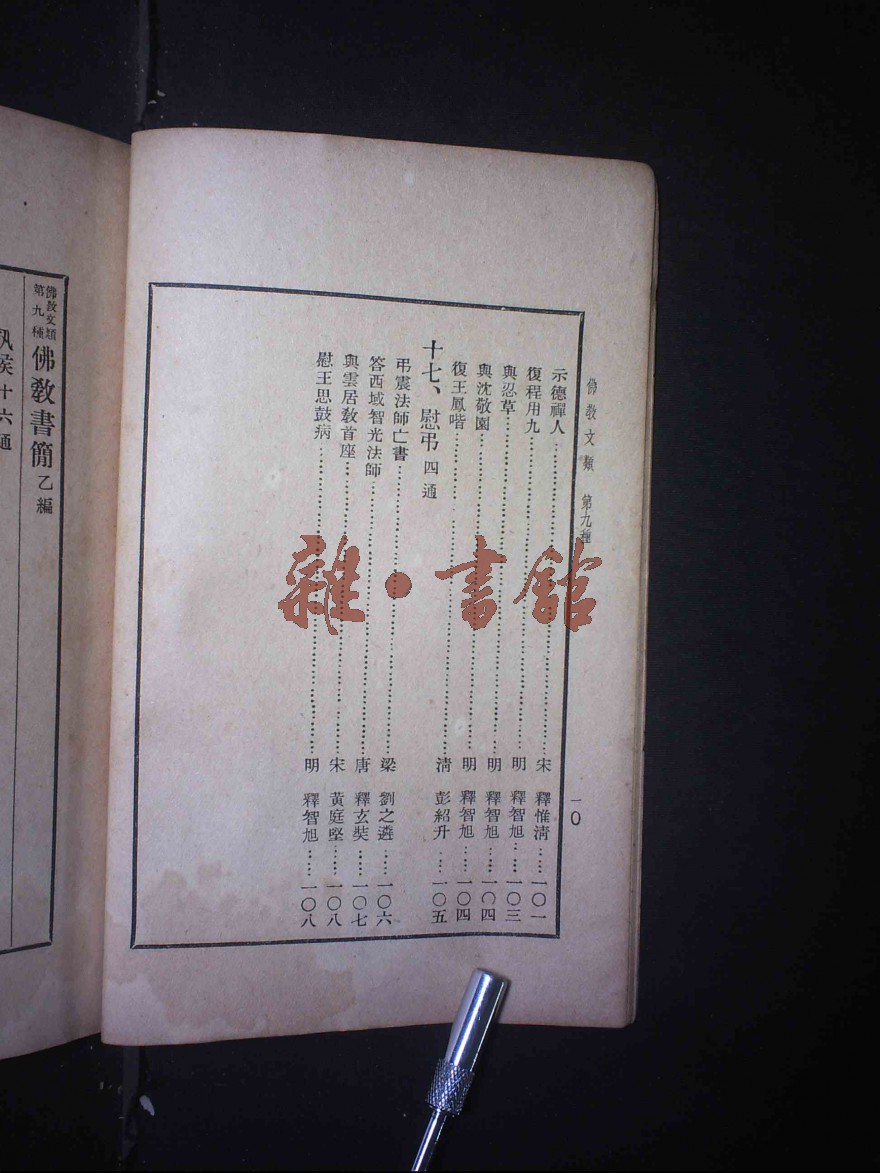 佛敎文類　第九種
一〇
示德禪人……宋　釋惟淸……一〇一
復程用九……明　釋智旭……一〇三
與忍草……明　釋智旭……一〇四
與沈敬園……明　釋智旭……一〇四
復王鳳喈……淸　彭紹升……一〇五
十七、慰弔　四通
弔震法師亡書……梁　劉之遴……一〇六
答西域智光法師……唐　釋玄奘……一〇七
與雲居敎首座……宋　黃庭堅……一〇八
慰王思鼓病……明　釋智旭……一〇八
雜·書館
佛敎文類
第九種
佛敎書簡乙編
候十六通